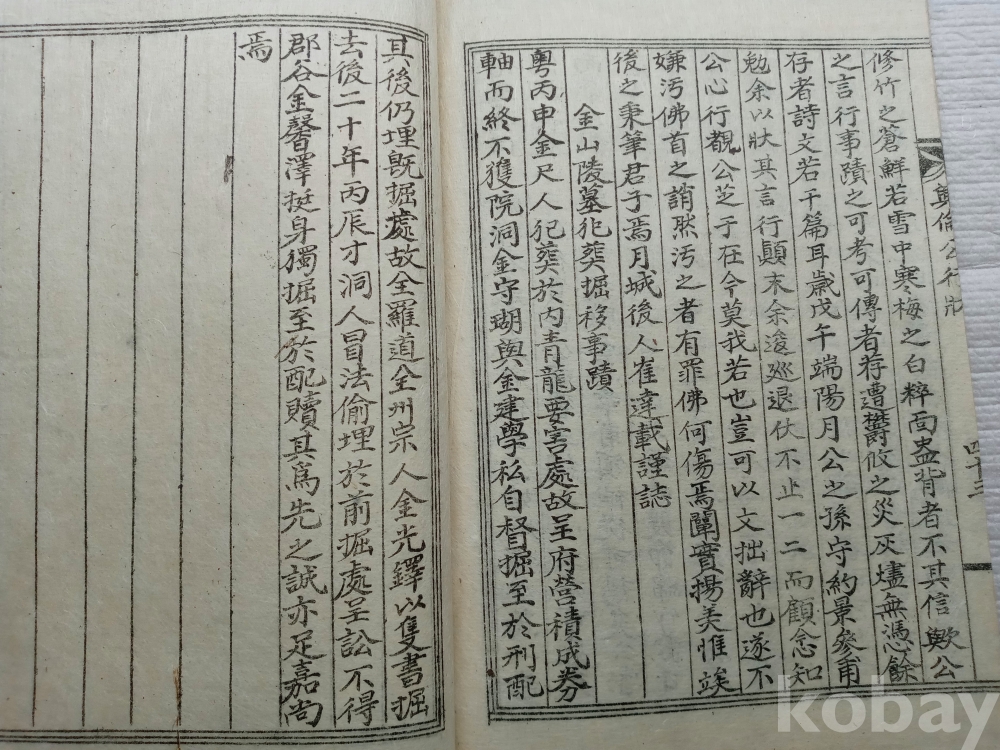 修竹之蒼鮮若雪中寒梅之白粹面盎背者不其信歟公
之言行事蹟之可考可傳者荐遭欝攸之災灰燼無憑餘
存者詩文若干篇耳歲戊午端陽月公之孫守約景參甫
勉余以狀其言行顛末余逡巡退伏不止一二而顧念知
公心行觀公芝于在今莫我若也豈可以文拙辭也遂不
嫌汚佛首之誚然汚之者有罪佛何傷焉闡實揚美惟竢
後之秉筆君子焉月城後人崔達載謹誌
金山陵墓犯葬掘移事蹟
粤丙申金尺人犯葬於內青龍要害處故呈府營積成券
軸而終不獲院洞金守瑚與金建學私自督掘至於刑配
公行狀
四十三
其後仍埋既掘處故全羅道全州宗人金光鐸以隻書掘
去後二十年丙辰才洞人冒法偷埋於前掘處呈訟不得
郡谷金馨澤挺身獨掘至於配贖其爲先之誠亦足嘉尚
焉
kobay